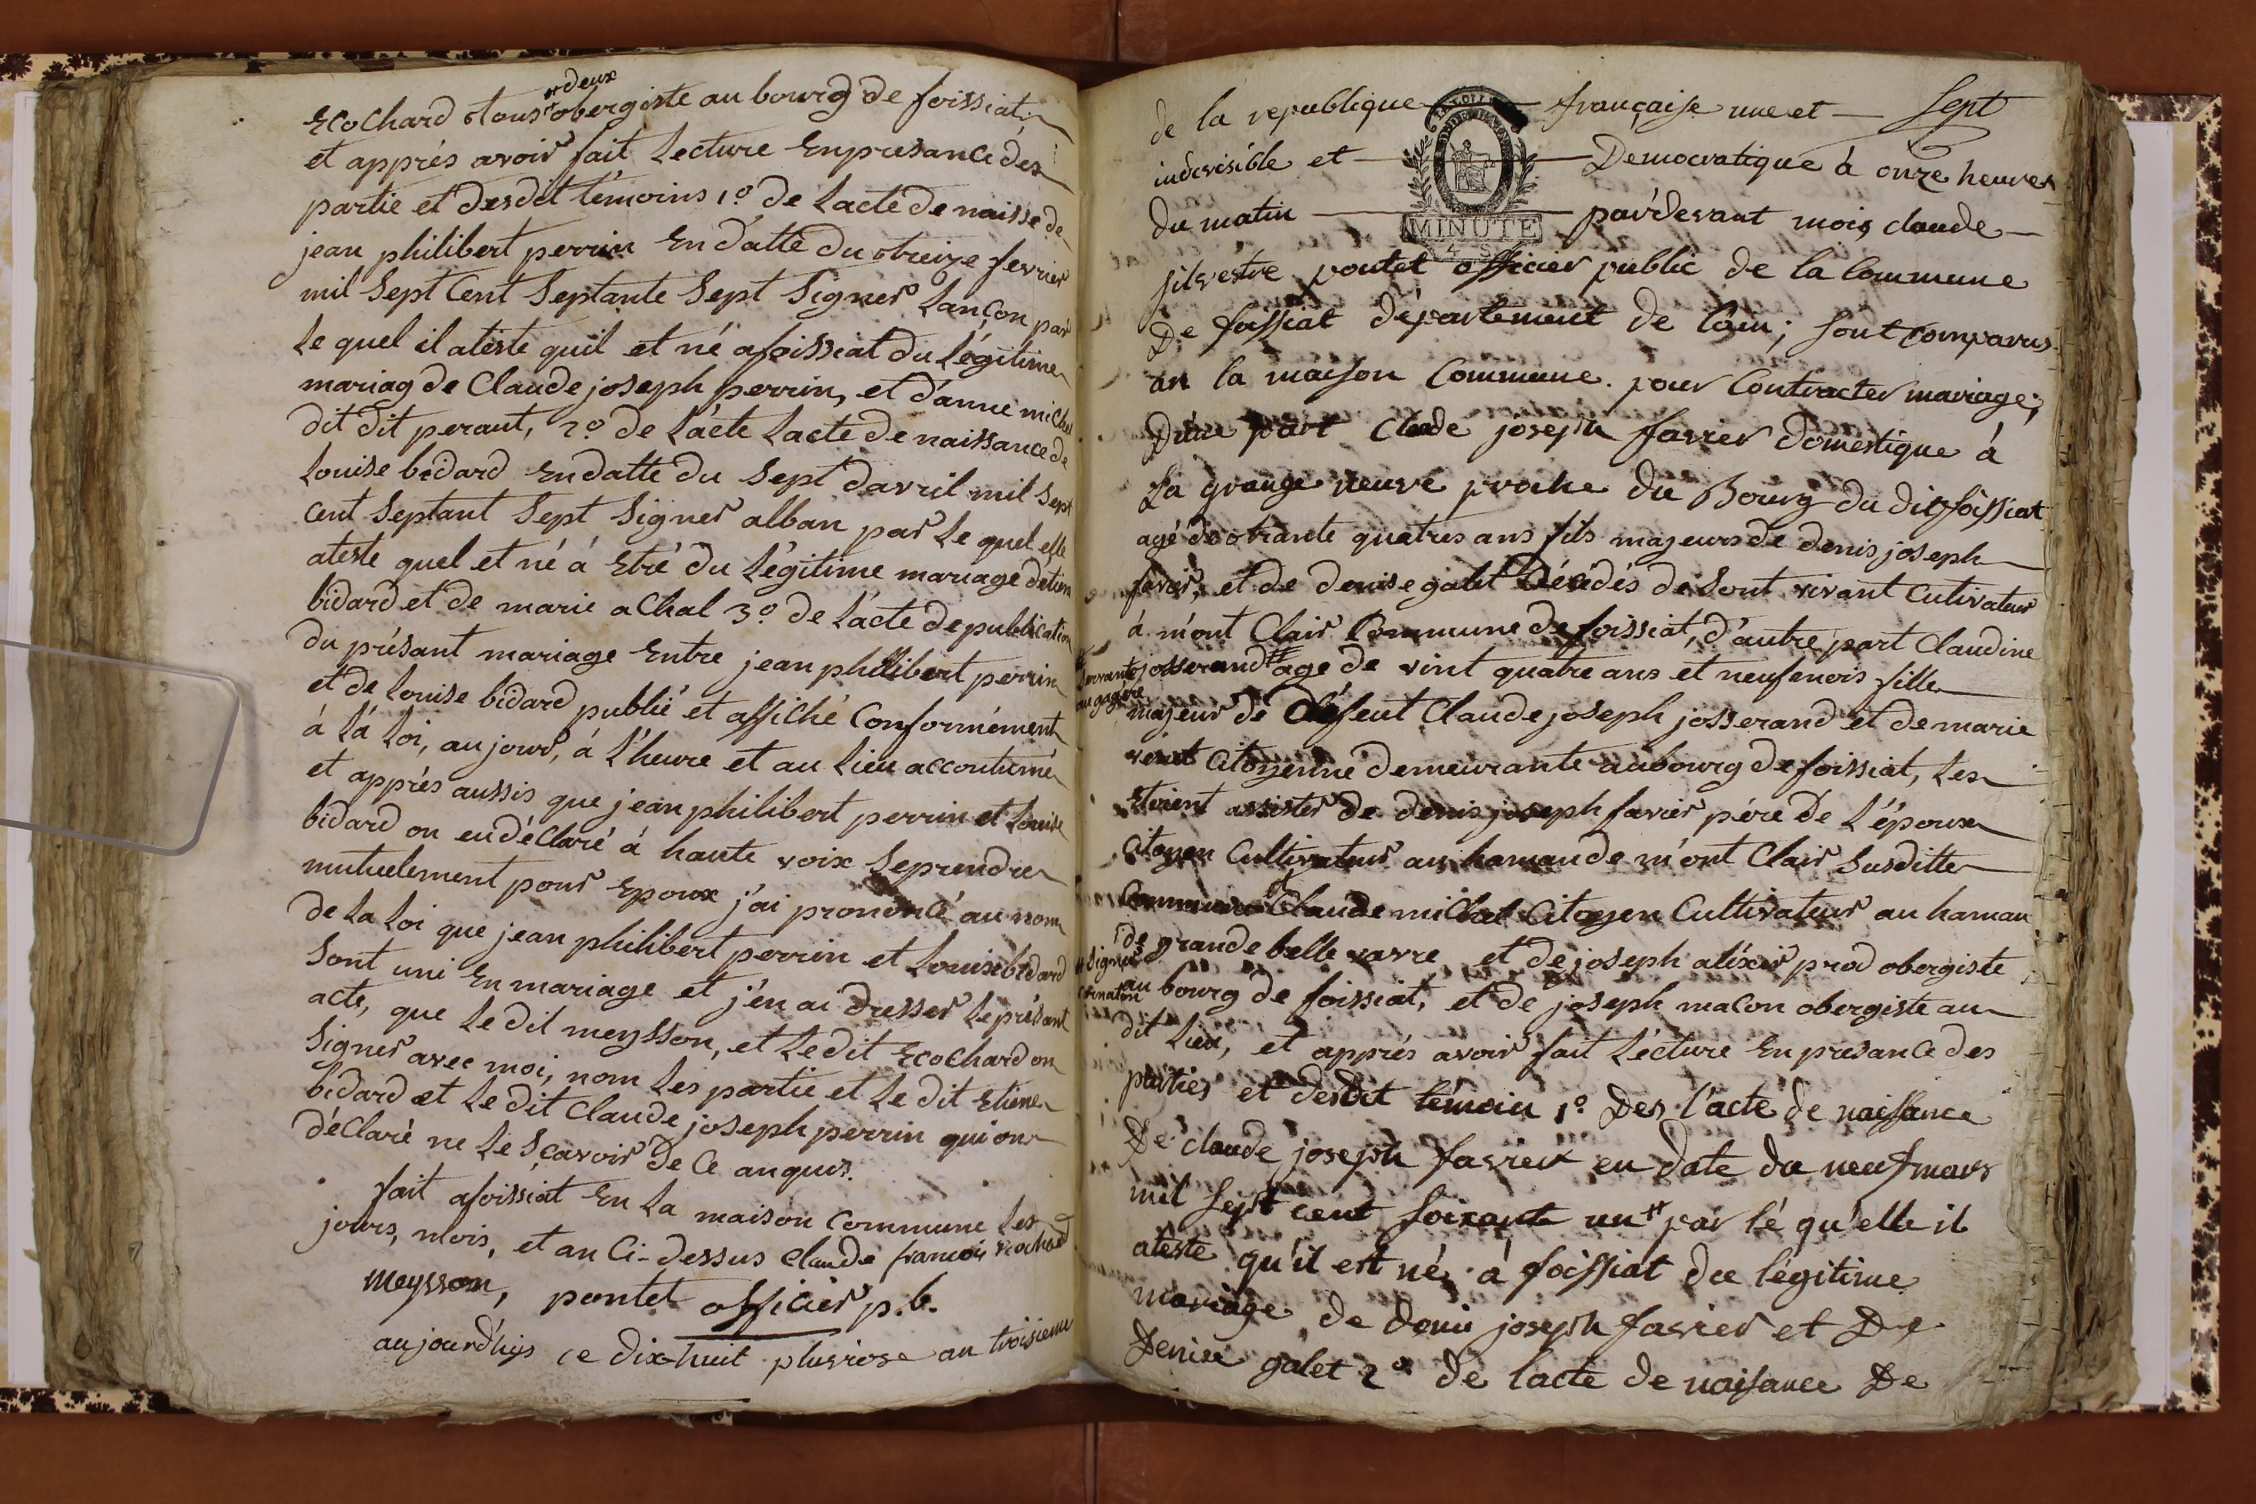 deux
Ecochard tous obergiste au bourg de foissiat
et apprés avoir fait Lecture En presance des
partie et desdit témoins 1º de Lacte de naisse de
jean philibert perrin En datte du treize fevrier
mil Sept Cent Septante Sept Signer Lançon par
le quel il ateste quil et né a foissiat du Légitime
mariag de Claude joseph perrin, et d'anne michel
dit dit peraut, 2º de L'acte Lacte de naissance de
Louise bidard En datte du Sept davril mil Sept
cent Septant Sept Signer alban par le quel elle
ateste quel et né á Etré du Légitime mariage d'etien
bidard et de marie achal 3º de L'acte de publication
du présant mariage Entre jean philibert perrin
et de Louise bidard publié et affiché Conformément
à Lá Loi, au jour, á L'heure et au Lieu accoutumé
et apprés aussis que jean philibert perrin et Louise
bidard on eu déClaré á haute voix Seprendre
mutuelement pour Epoux j'ai prononcé au nom
de La Loi que jean philibert perrin et Louise bidard
Sont uni En mariage et j'en ai dresser le présant
acte, que Le dit meysson, et Le dit Ecochard on
Signer avec moi, nom Les partie et Le dit Etiene
bidard et Le dit Claude joseph perrin qui on
déClaré ne Le Sçavoir de Ce anquis.
fait a foissiat En La maison Commune Les
jours, mois, et an Ci-dessus Claude francois ecochard
meysson, pontet officier p.b.
aujourd'hys ce dix-huit pluviose an troisieme
de la republique française une et Sept
indivisible et Democratique à onze heures
du matin par devant mois claude
MINUTE
silvestre pontet officier public de la Commune
De foissiat département de l'ain; sont comparus
an la maison Commune. pour Contracter mariage;
D'une part Claude joseph favier domestique à
La grange neuve proche du Bourg du dit foissiat
agé de trante quatres ans fils majeurs de denis joseph
favier, et de denise galet décédés de Sont vivant Cutivateur
á mont Clair Commune de foissiat, d'autre part Claudine
servante
au gagere
josserand age de vint quatre ans et neuf mois fille
majeur de défeut Claude joseph josserand et de marie
Citoyenne demeurante au bourg de foissiat, Les
Etoient assister de denis joseph favier pére de L'époux
Citoyen Cultivateur au hamau de mont Clair Susditte
Commune Claude michel Citoyen Cultivateur au hamau
de grande belle vavre et de joseph aléxis prod obergiste
# Signer
au bourg de foissiat, et de joseph macon obergiste au
dit Lieu, et apprés avoir fait Lécture En presance des
parties et desdit témoin 1º Des l'acte de naissance
De claude joseph favier en date du neuf mars
mil Sept cent soixante un par lé qu'elle il
ateste qu'il est né à foissiat du légitime
mariage de denis joseph favier et De
Denise galet 2º de l'acte de naisance De